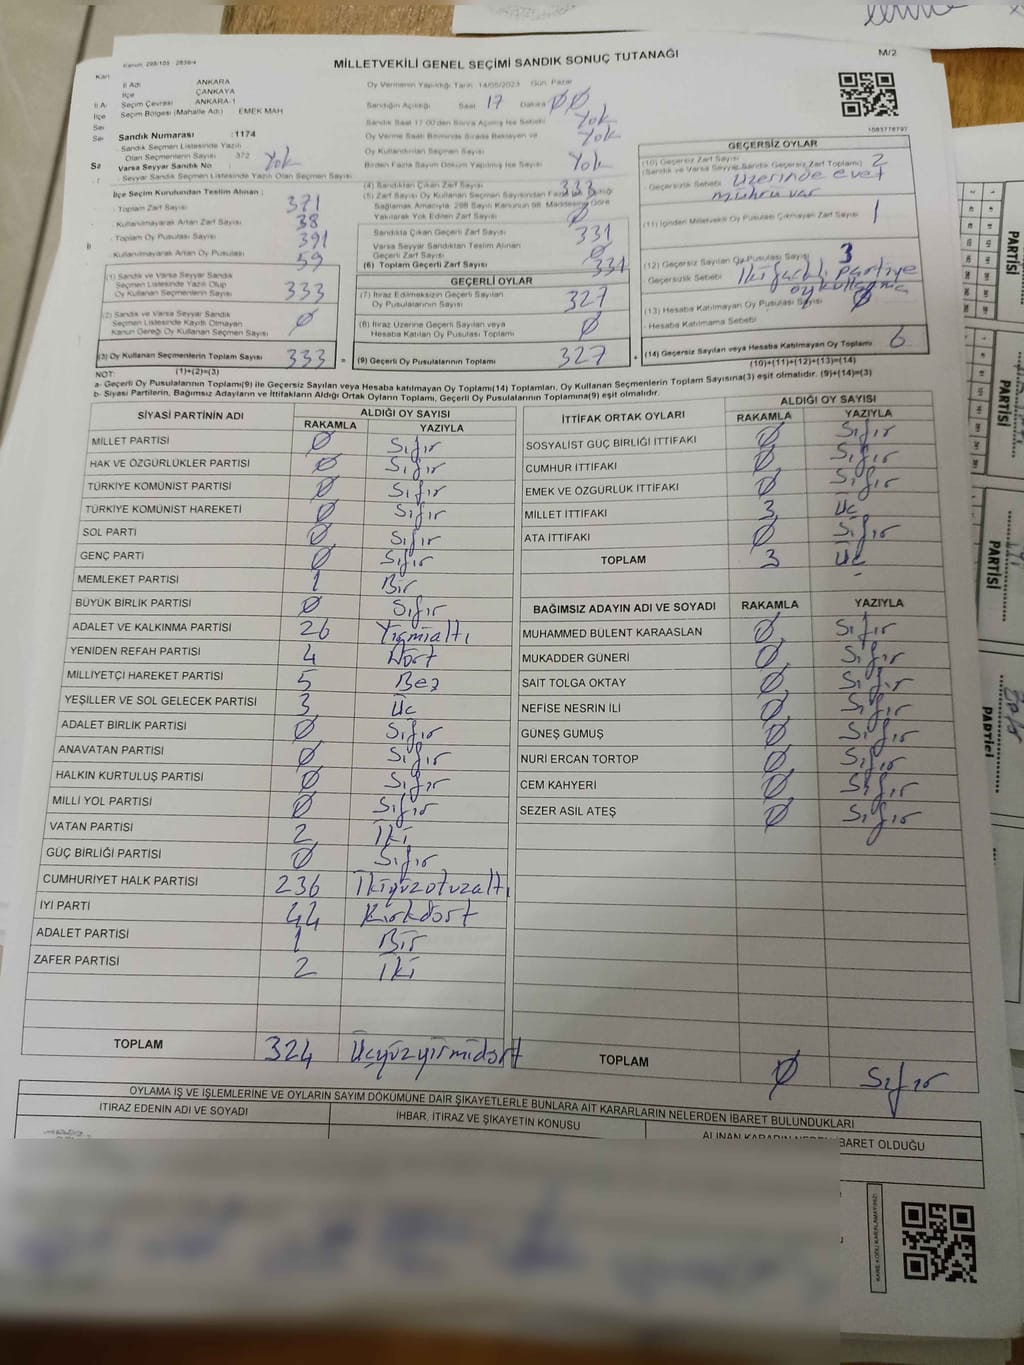 MİLLETVEKİLİ GENEL SEÇİMİ SANDIK SONUÇ TUTANAĞI
M/2
Kanun: 298/105 - 2839/4
İl Adı ANKARA
İlçe ÇANKAYA
Seçim Çevresi ANKARA-1
Seçim Bölgesi (Mahalle Adı) : EMEK MAH
Sandık Numarası :1174
Sandık Seçmen Listesinde Yazılı
Olan Seçmenlerin Sayısı 372
Varsa Seyyar Sandık No : Yok
Seyyar Sandık Seçmen Listesinde Yazılı Olan Seçmen Sayısı
Oy Vermenin Yapıldığı Tarih: 14/05/2023 Gün: Pazar
Sandığın Açıldığı Saat 17 Dakika 00
Sandık Saat 17.00'den Sonra Açılmış İse Sebebi Yok
Oy Verme Saati Bitiminde Sırada Bekleyen ve
Oy Kullandırılan Seçmen Sayısı Yok
Birden Fazla Sayım Döküm Yapılmış İse Sayısı Yok
1083778797
İlçe Seçim Kurulundan Teslim Alınan :
Toplam Zarf Sayısı 371
Kullanılmayarak Artan Zarf Sayısı 38
Toplam Oy Pusulası Sayısı 391
Kullanılmayarak Artan Oy Pusulası 59
(1) Sandık ve Varsa Seyyar Sandık
Seçmen Listesinde Yazılı Olup
Oy Kullanan Seçmenlerin Sayısı 333
(2) Sandık ve Varsa Seyyar Sandık
Seçmen Listesinde Kayıtlı Olmayan
Kanun Gereği Oy Kullanan Seçmen Sayısı Ø
(3) Oy Kullanan Seçmenlerin Toplam Sayısı 333 =
(1)+(2)=(3)
(4) Sandıktan Çıkan Zarf Sayısı 333
(5) Zarf Sayısı Oy Kullanan Seçmen Sayısından Fazla ise, Birliği
Sağlamak Amacıyla, 298 Sayılı Kanunun 98. Maddesine Göre
Yakılarak Yok Edilen Zarf Sayısı Ø
Sandıkta Çıkan Geçerli Zarf Sayısı 331
Varsa Seyyar Sandıktan Teslim Alınan
Geçerli Zarf Sayısı Ø
(6) Toplam Geçerli Zarf Sayısı 331
GEÇERLİ OYLAR
(7) İtiraz Edilmeksizin Geçerli Sayılan
Oy Pusulalarının Sayısı 327
(8) İtiraz Üzerine Geçerli Sayılan veya
Hesaba Katılan Oy Pusulası Toplamı Ø
(9) Geçerli Oy Pusulalarının Toplamı 327 +
GEÇERSİZ OYLAR
(10) Geçersiz Zarf Sayısı 2
(Sandık ve Varsa Seyyar Sandık Geçersiz Zarf Toplamı)
- Geçersizlik Sebebi Üzerinde evet
mührü var
(11) İçinden Milletvekili Oy Pusulası Çıkmayan Zarf Sayısı 1
(12) Geçersiz Sayılan Oy Pusulası Sayısı 3
Geçersizlik Sebebi İki farklı partiye
oy kullanma
(13) Hesaba Katılmayan Oy Pusulası Sayısı Ø
- Hesaba Katılmama Sebebi
(14) Geçersiz Sayılan veya Hesaba Katılmayan Oy Toplamı 6
(10)+(11)+(12)+(13)=(14)
NOT:
a- Geçerli Oy Pusulalarının Toplamı(9) ile Geçersiz Sayılan veya Hesaba katılmayan Oy Toplamı(14) Toplamları, Oy Kullanan Seçmenlerin Toplam Sayısına(3) eşit olmalıdır. (9)+(14)=(3)
b- Siyasi Partilerin, Bağımsız Adayların ve İttifakların Aldığı Ortak Oyların Toplamı, Geçerli Oy Pusulalarının Toplamına(9) eşit olmalıdır.
SİYASİ PARTİNİN ADI ALDIĞI OY SAYISI
RAKAMLA YAZIYLA
MİLLET PARTİSİ Ø Sıfır
HAK VE ÖZGÜRLÜKLER PARTİSİ Ø Sıfır
TÜRKİYE KOMÜNİST PARTİSİ Ø Sıfır
TÜRKİYE KOMÜNİST HAREKETİ Ø Sıfır
SOL PARTİ Ø Sıfır
GENÇ PARTİ Ø Sıfır
MEMLEKET PARTİSİ 1 Bir
BÜYÜK BİRLİK PARTİSİ Ø Sıfır
ADALET VE KALKINMA PARTİSİ 26 Yirmialtı
YENİDEN REFAH PARTİSİ 4 Dört
MİLLİYETÇİ HAREKET PARTİSİ 5 Beş
YEŞİLLER VE SOL GELECEK PARTİSİ 3 Üç
ADALET BİRLİK PARTİSİ Ø Sıfır
ANAVATAN PARTİSİ Ø Sıfır
HALKIN KURTULUŞ PARTİSİ Ø Sıfır
MİLLİ YOL PARTİSİ Ø Sıfır
VATAN PARTİSİ 2 İki
GÜÇ BİRLİĞİ PARTİSİ Ø Sıfır
CUMHURİYET HALK PARTİSİ 236 İkiyüzotuzaltı
İYİ PARTİ 44 Kırkdört
ADALET PARTİSİ 1 Bir
ZAFER PARTİSİ 2 İki
TOPLAM 324 Üçyüzyirmidört
İTTİFAK ORTAK OYLARI ALDIĞI OY SAYISI
RAKAMLA YAZIYLA
SOSYALİST GÜÇ BİRLİĞİ İTTİFAKI Ø Sıfır
CUMHUR İTTİFAKI Ø Sıfır
EMEK VE ÖZGÜRLÜK İTTİFAKI Ø Sıfır
MİLLET İTTİFAKI 3 Üç
ATA İTTİFAKI Ø Sıfır
TOPLAM 3 Üç
BAĞIMSIZ ADAYIN ADI VE SOYADI RAKAMLA YAZIYLA
MUHAMMED BÜLENT KARAASLAN Ø Sıfır
MUKADDER GÜNERİ Ø Sıfır
SAİT TOLGA OKTAY Ø Sıfır
NEFİSE NESRİN İLİ Ø Sıfır
GÜNEŞ GÜMÜŞ Ø Sıfır
NURİ ERCAN TORTOP Ø Sıfır
CEM KAHYERİ Ø Sıfır
SEZER ASİL ATEŞ Ø Sıfır
TOPLAM Ø Sıfır
OYLAMA İŞ VE İŞLEMLERİNE VE OYLARIN SAYIM DÖKÜMÜNE DAİR ŞİKAYETLERLE BUNLARA AİT KARARLARIN NELERDEN İBARET BULUNDUKLARI
İTİRAZ EDENİN ADI VE SOYADI
İHBAR, İTİRAZ VE ŞİKAYETİN KONUSU
ALINAN KARARIN NEDEN İBARET OLDUĞU
KARE KODU KARALAMAYINIZ!
PARTİSİ
PARTİSİ
PARTİSİ
PARTİSİ